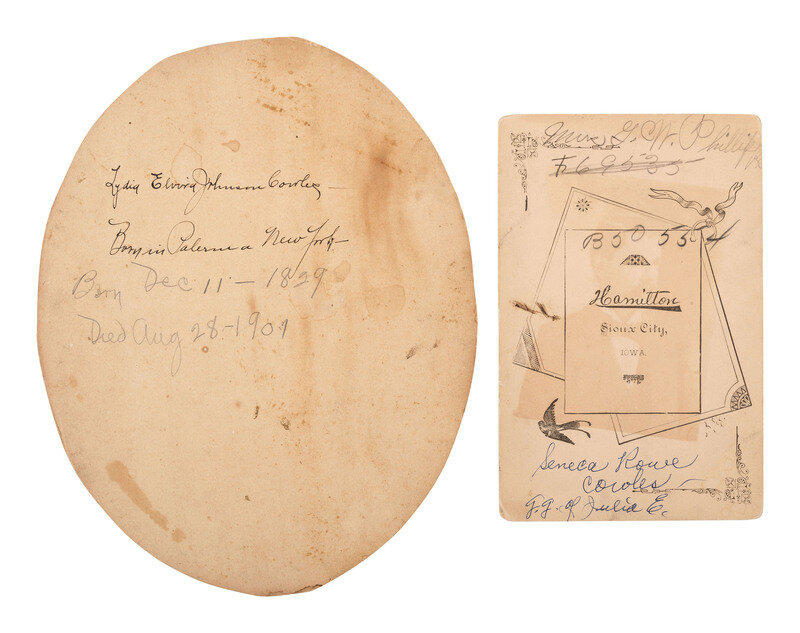 Lydia Elvira Johnson Cowles
Born in Palermo New York
Born Dec 11 - 1829
Died Aug 28 - 1901
Mrs G. W. Phillips
B50 554
Hamilton
Sioux City,
IOWA.
Seneca Rowe
Cowles
g.g. of Julia E.